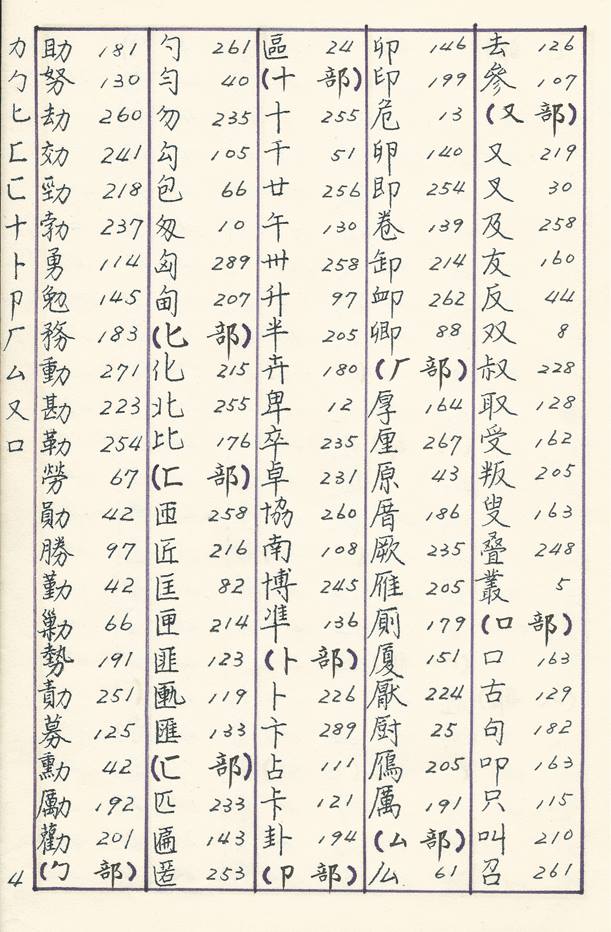 力
勹
匕
匚
匸
十
卜
卩
厂
厶
又
口
4
助 181
努 130
劫 260
効 241
勁 218
勃 237
勇 114
勉 145
務 183
動 271
勘 223
勒 254
勞 67
勛 42
勝 97
勤 42
勦 66
勢 191
勣 251
募 125
勳 42
勵 192
勸 201
(勹 部)
勺 261
勻 40
勿 235
勾 105
包 66
匆 10
匈 289
甸 207
(匕 部)
化 215
北 255
比 176
(匚 部)
匝 258
匠 216
匡 82
匣 214
匪 123
匭 119
匯 133
(匸 部)
匹 233
匾 143
匿 253
區 24
(十 部)
十 255
干 51
廿 256
午 130
卅 258
升 97
半 205
卉 180
卑 12
卒 235
卓 231
協 260
南 108
博 245
準 136
(卜 部)
卜 226
卞 289
占 111
卡 121
卦 194
(卩 部)
卯 146
印 199
危 13
卵 140
即 254
卷 139
卸 214
卹 262
卿 88
(厂 部)
厚 164
厘 267
原 43
厝 186
厥 235
雁 205
厠 179
廈 151
厭 224
厨 25
鴈 205
厲 191
(厶 部)
厸 61
去 126
參 107
(又 部)
又 219
叉 30
及 258
友 160
反 44
双 8
叔 228
取 128
受 162
叛 205
叟 163
疊 248
叢 5
(口 部)
口 163
古 129
句 182
叩 163
只 115
叫 210
召 261